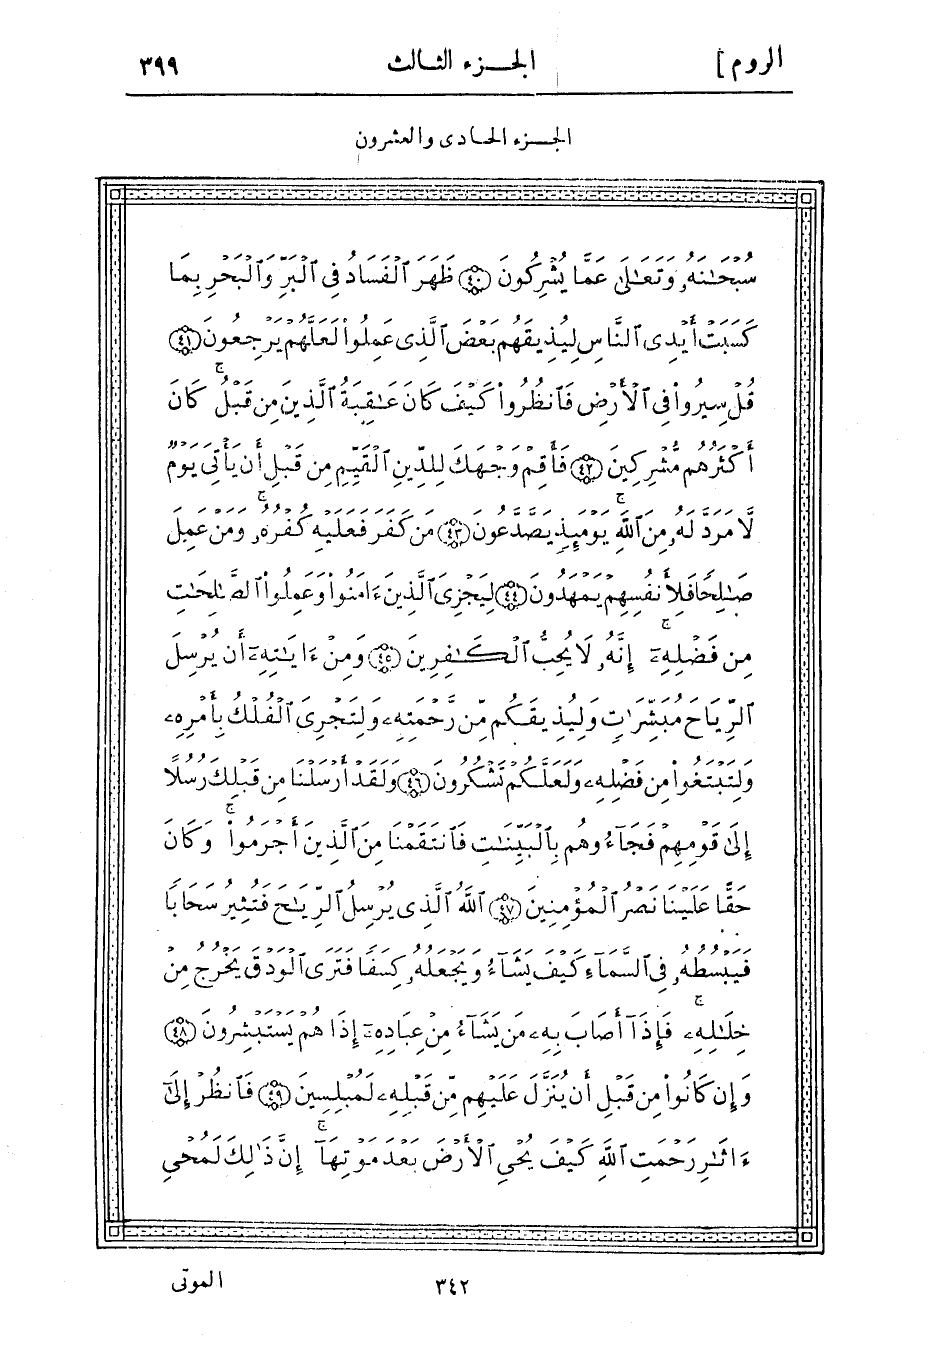 الروم] الجزء الثالث ٣٩٩
الجزء الحادى والعشرون
سُبْحَـٰنَهُۥ وَتَعَـٰلَىٰ عَمَّا يُشْرِكُونَ ﴿٤٠﴾ ظَهَرَ ٱلْفَسَادُ فِى ٱلْبَرِّ وَٱلْبَحْرِ بِمَا
كَسَبَتْ أَيْدِى ٱلنَّاسِ لِيُذِيقَهُم بَعْضَ ٱلَّذِى عَمِلُوا۟ لَعَلَّهُمْ يَرْجِعُونَ ﴿٤١﴾
قُلْ سِيرُوا۟ فِى ٱلْأَرْضِ فَٱنظُرُوا۟ كَيْفَ كَانَ عَـٰقِبَةُ ٱلَّذِينَ مِن قَبْلُ ۚ كَانَ
أَكْثَرُهُم مُّشْرِكِينَ ﴿٤٢﴾ فَأَقِمْ وَجْهَكَ لِلدِّينِ ٱلْقَيِّمِ مِن قَبْلِ أَن يَأْتِىَ يَوْمٌ
لَّا مَرَدَّ لَهُۥ مِنَ ٱللَّهِ ۖ يَوْمَئِذٍ يَصَّدَّعُونَ ﴿٤٣﴾ مَن كَفَرَ فَعَلَيْهِ كُفْرُهُۥ ۖ وَمَنْ عَمِلَ
صَـٰلِحًا فَلِأَنفُسِهِمْ يَمْهَدُونَ ﴿٤٤﴾ لِيَجْزِىَ ٱلَّذِينَ ءَامَنُوا۟ وَعَمِلُوا۟ ٱلصَّـٰلِحَـٰتِ
مِن فَضْلِهِۦٓ ۚ إِنَّهُۥ لَا يُحِبُّ ٱلْكَـٰفِرِينَ ﴿٤٥﴾ وَمِنْ ءَايَـٰتِهِۦٓ أَن يُرْسِلَ
ٱلرِّيَاحَ مُبَشِّرَٰتٍ وَلِيُذِيقَكُم مِّن رَّحْمَتِهِۦ وَلِتَجْرِىَ ٱلْفُلْكُ بِأَمْرِهِۦ
وَلِتَبْتَغُوا۟ مِن فَضْلِهِۦ وَلَعَلَّكُمْ تَشْكُرُونَ ﴿٤٦﴾ وَلَقَدْ أَرْسَلْنَا مِن قَبْلِكَ رُسُلًا
إِلَىٰ قَوْمِهِمْ فَجَآءُوهُم بِٱلْبَيِّنَـٰتِ فَٱنتَقَمْنَا مِنَ ٱلَّذِينَ أَجْرَمُوا۟ ۖ وَكَانَ
حَقًّا عَلَيْنَا نَصْرُ ٱلْمُؤْمِنِينَ ﴿٤٧﴾ ٱللَّهُ ٱلَّذِى يُرْسِلُ ٱلرِّيَـٰحَ فَتُثِيرُ سَحَابًا
فَيَبْسُطُهُۥ فِى ٱلسَّمَآءِ كَيْفَ يَشَآءُ وَيَجْعَلُهُۥ كِسَفًا فَتَرَى ٱلْوَدْقَ يَخْرُجُ مِنْ
خِلَـٰلِهِۦ ۖ فَإِذَآ أَصَابَ بِهِۦ مَن يَشَآءُ مِنْ عِبَادِهِۦٓ إِذَا هُمْ يَسْتَبْشِرُونَ ﴿٤٨﴾
وَإِن كَانُوا۟ مِن قَبْلِ أَن يُنَزَّلَ عَلَيْهِم مِّن قَبْلِهِۦ لَمُبْلِسِينَ ﴿٤٩﴾ فَٱنظُرْ إِلَىٰٓ
ءَاثَـٰرِ رَحْمَتِ ٱللَّهِ كَيْفَ يُحْىِ ٱلْأَرْضَ بَعْدَ مَوْتِهَآ ۚ إِنَّ ذَٰلِكَ لَمُحْىِ
الموتى ٣٤٢